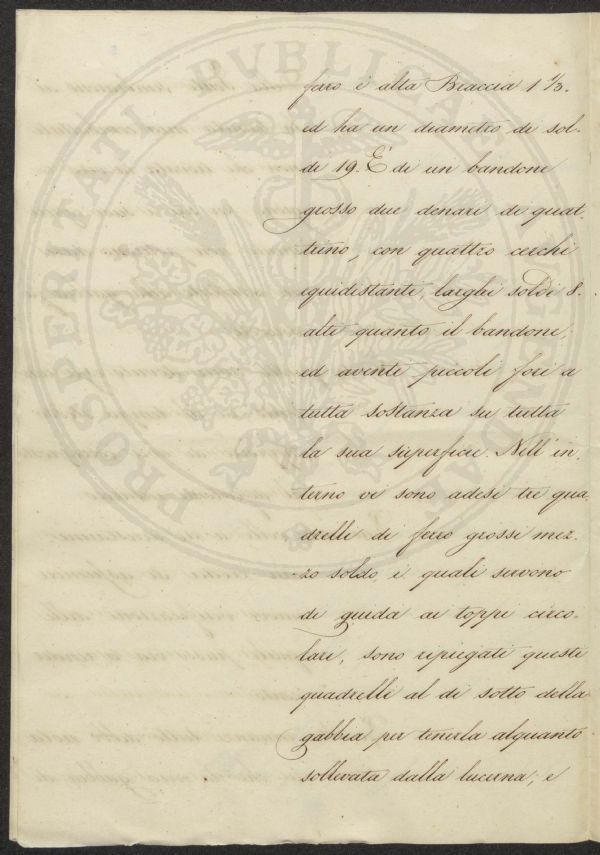 ferro è alta Braccia 1 1/3.
ed ha un diametro di sol-
di 19. È di un bandone
grosso due denari di quat-
trino, con quattro cerchi
equidistanti, larghi soldi 8.
alti quanto il bandone,
ed aventi piccoli fori a
tutta sostanza su tutta
la sua superficie. Nell' in-
terno vi sono adesi tre qua-
drelli di ferro grossi mez-
zo soldo, i quali servono
di guida ai toppi circo-
lari, sono ripiegati questi
quadrelli al di sotto della
gabbia per tenerla alquanto
sollevata dalla lucerna; e
PROSPERITATI PVBLICAE